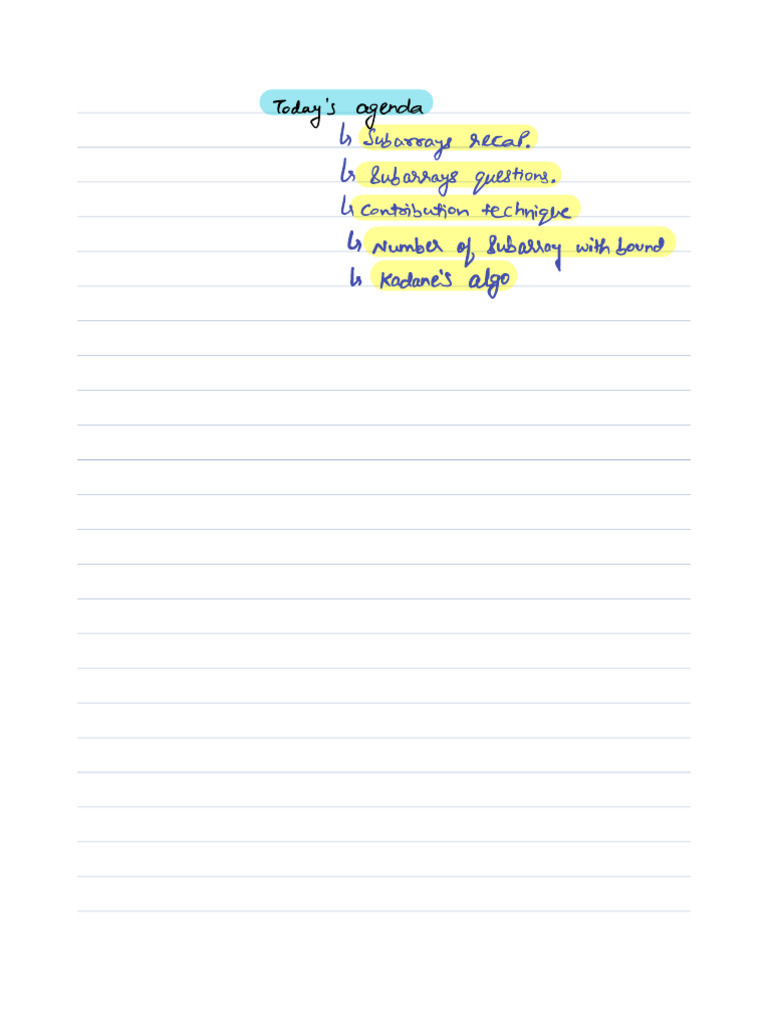 Today's agenda
↳ Subarrays recap.
↳ Subarrays questions.
↳ Contribution technique
↳ Number of Subarray with bound
↳ Kadane's algo